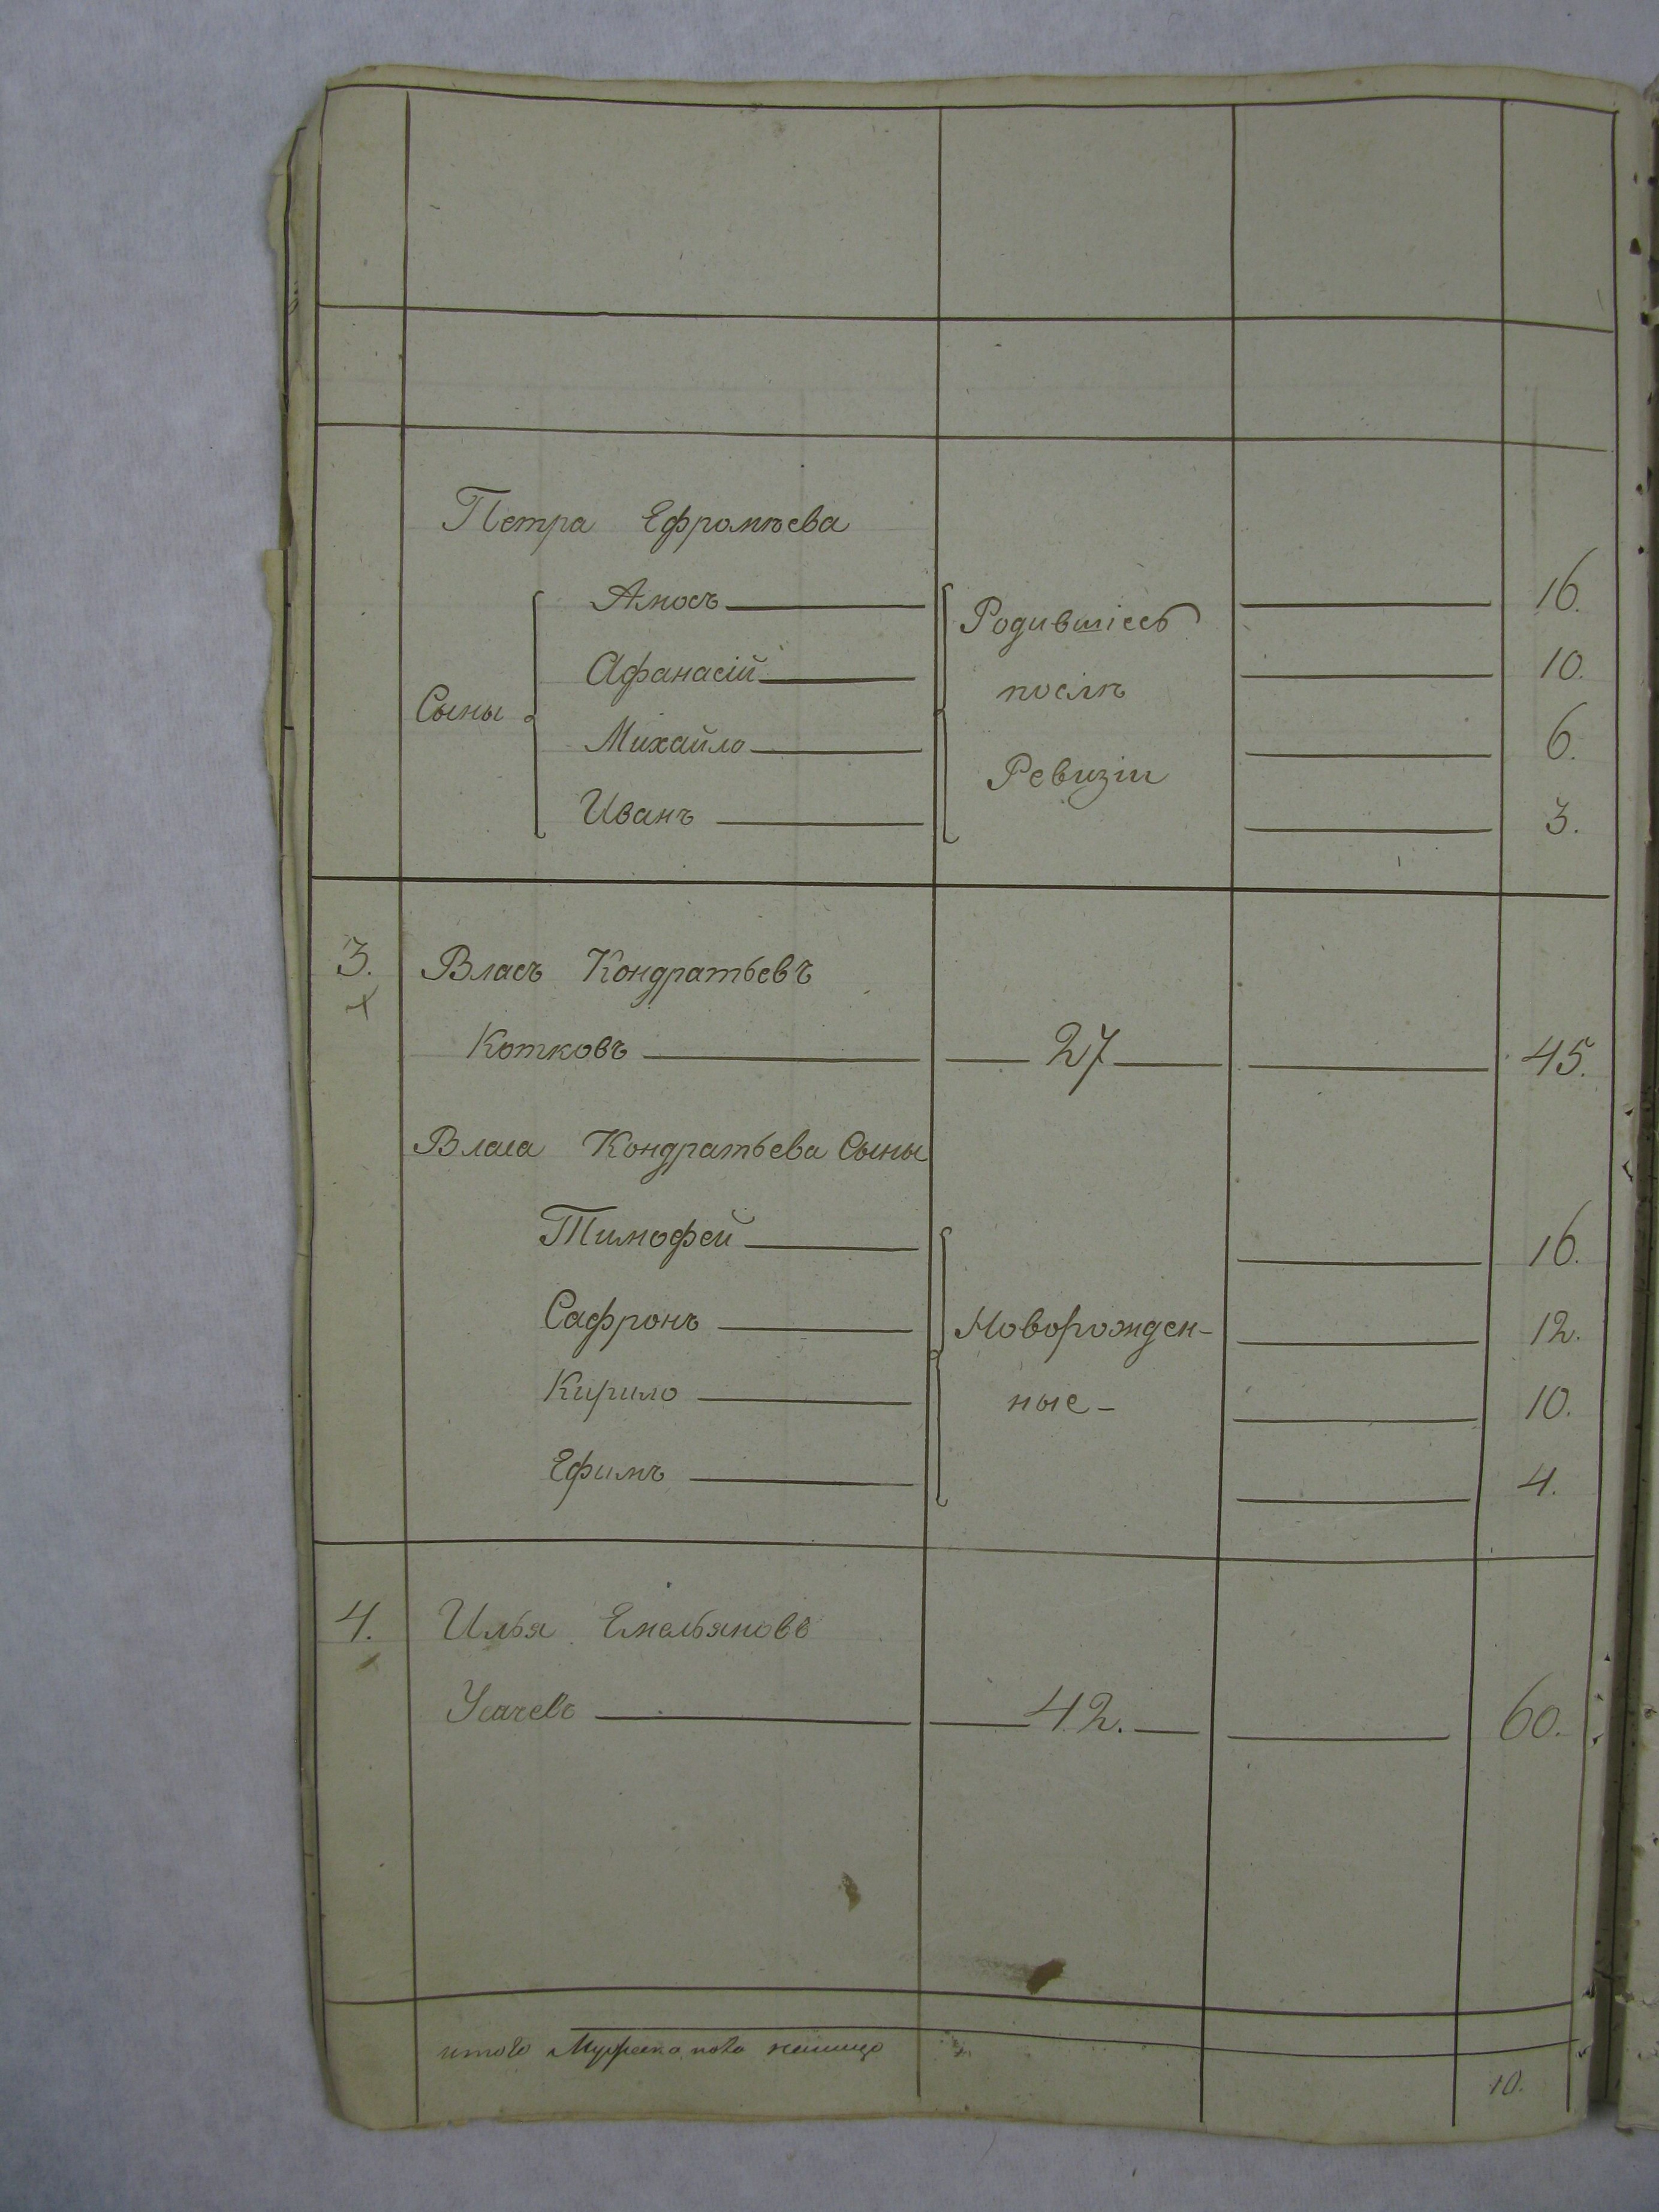 Петра Ефромѣева
Сыны
Амосъ 16.
Афанасій 10.
Михайло 6.
Иванъ 3.
Родившіесь
послѣ
Ревизіи
3. Власъ Кондратьевъ
Котковъ 27 45.
Власа Кондратьева Сыны
Тимофей 16.
Сафронъ 12.
Кирило 10.
Ефимъ 4.
Новорожден-
ные-
4. Илья Емельяновъ
Усачевъ 42. 60.
итого Мужеска пола налицо
10.